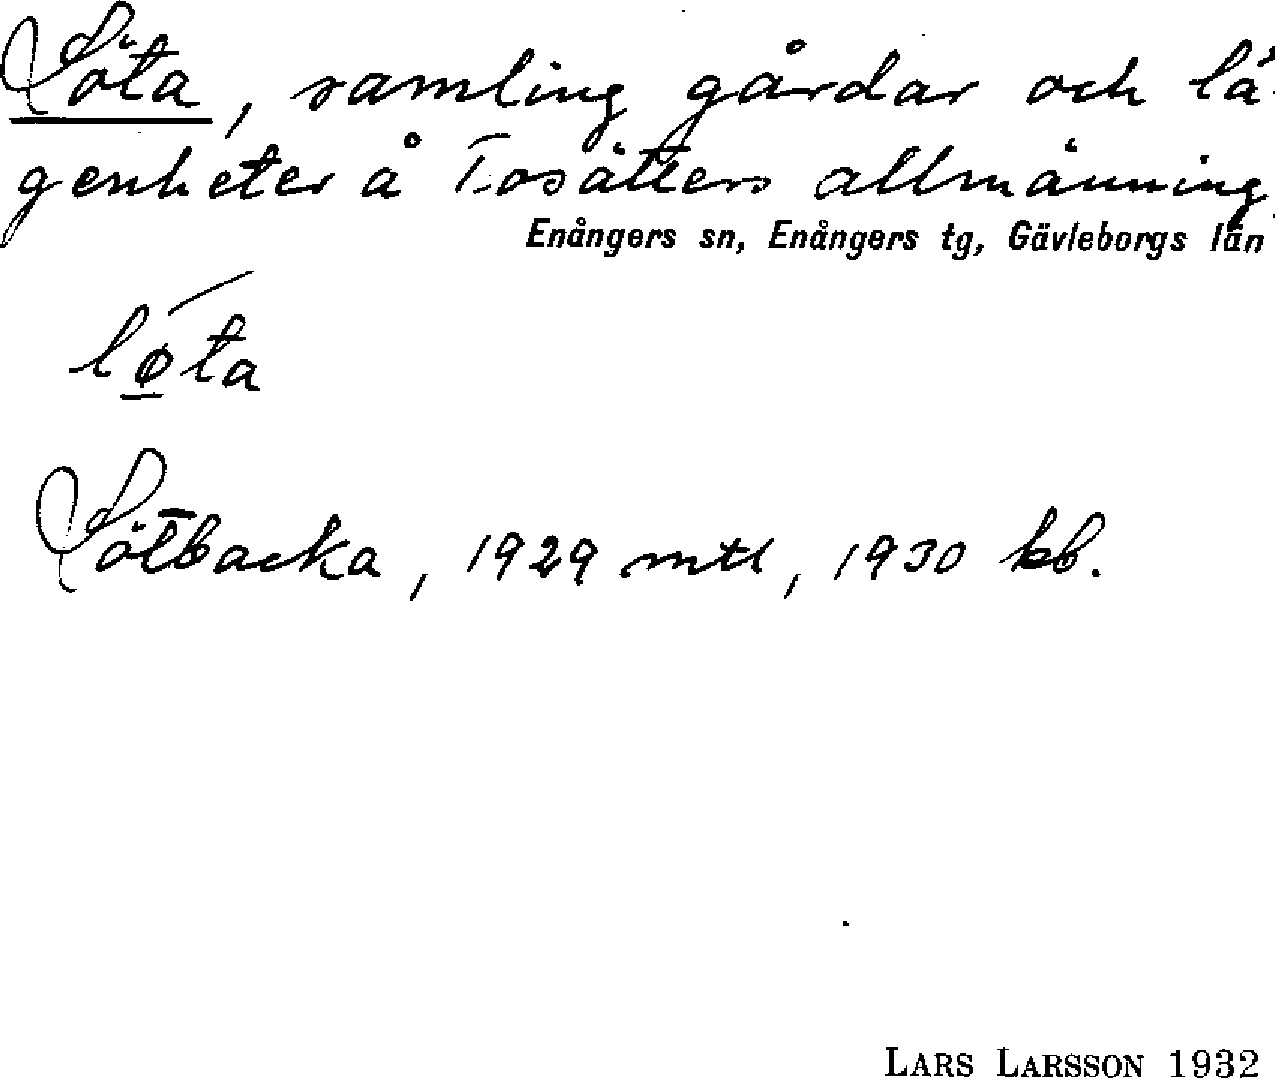 Löta, samling gårdar och lä-
genheter å Tosätters allmänning
Enångers sn, Enångers tg, Gävleborgs län
lǿ̲ta
Lötbacka, 1929 mtl, 1930 kb.
LARS LARSSON 1932